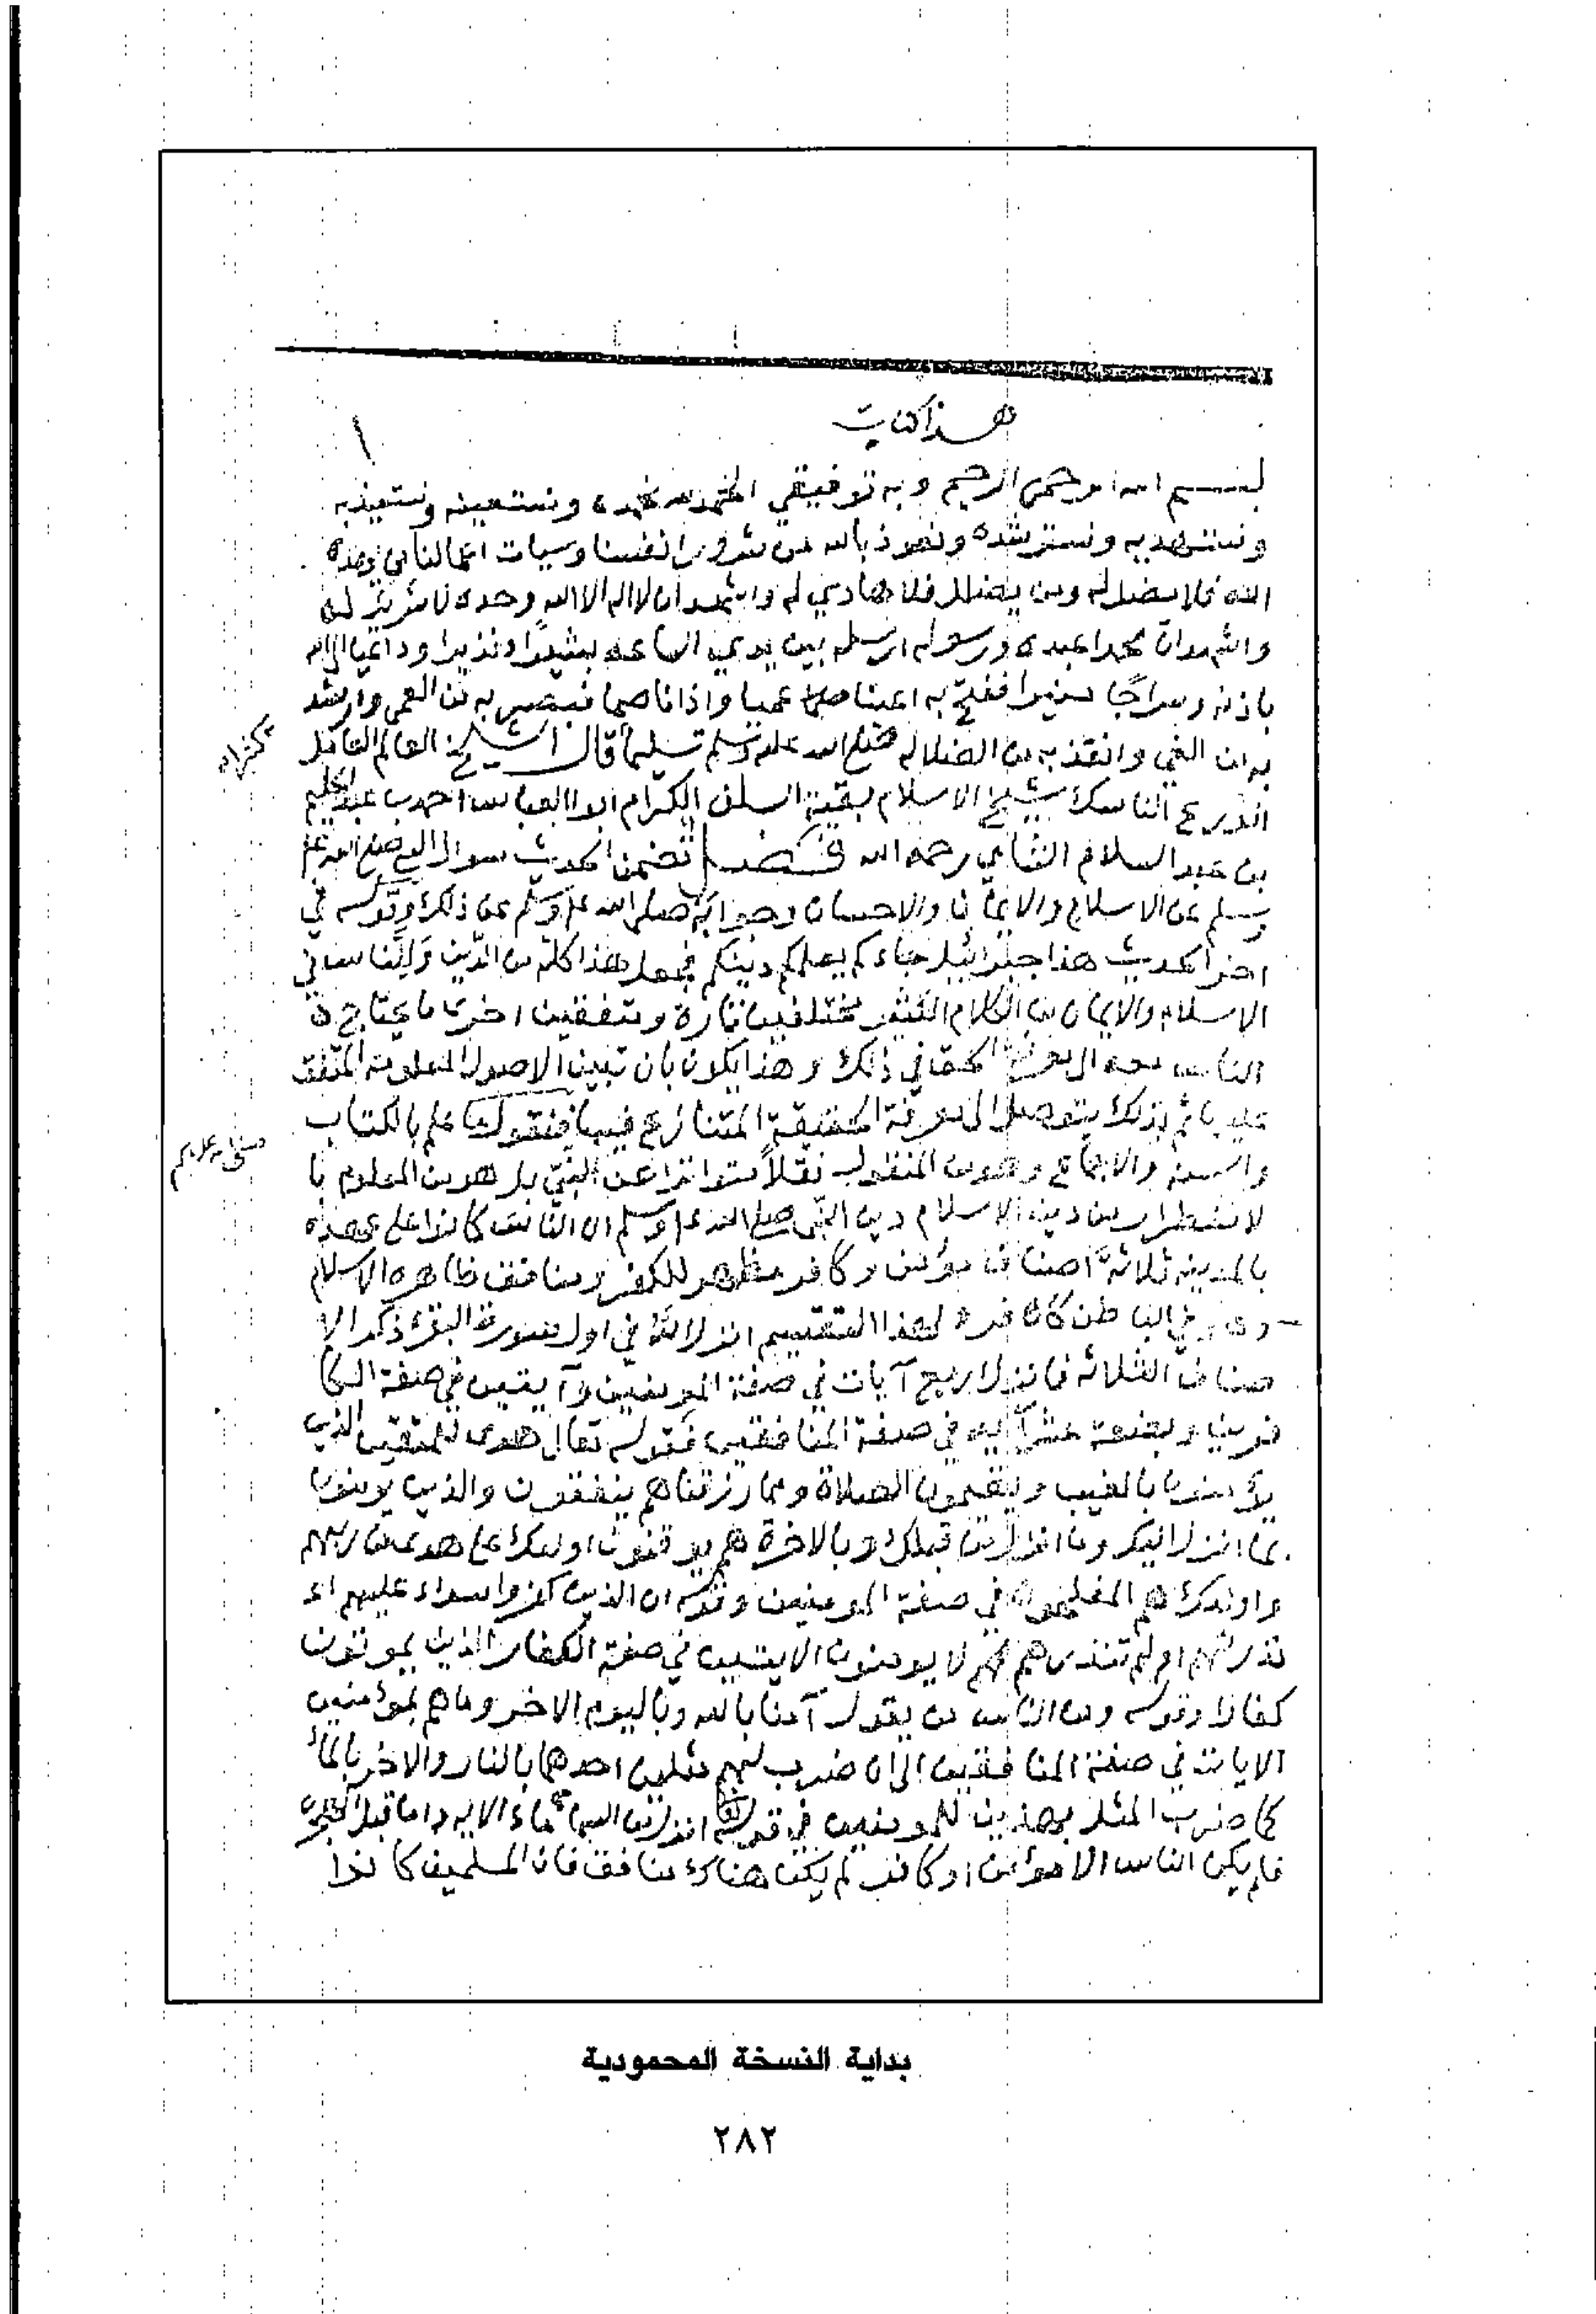 هذا كتاب
١
بسم الله الرحمن الرحيم وبه توفيقي الحمد لله نحمده ونستعينه ونستعيذ به
ونستهديه ونسترشده ونعوذ بالله من شرور انفسنا وسيات اعمالنا من يهده
الله فلا مضل له ومن يضلل فلا هادي له واشهد ان لا اله الا الله وحده لا شريك له
واشهد ان محمدا عبده ورسوله ارسله بين يدي الساعه بشيرا ونذيرا وداعيا الى الله
باذنه وسراجا منيرا ففتح به اعينا عميا واذانا صما فبصر به من العمى وارشد
به من الغي وانقذ به من الضلاله صلى الله عليه وسلم تسليما قال الشيخ العالم العامل
الورع الناسك شيخ الاسلام بقية السلف الكرام ابو العباس احمد بن عبد الحليم
بن عبد السلام الشامي رحمه الله فصل تضمن الحديث سوال النبي صلى الله عليه
وسلم عن الاسلام والايمان والاحسان وجوابه صلى الله عليه وسلم عن ذلك وقوله في
اخر الحديث هذا جبرائيل جاءكم يعلمكم دينكم فجعل هذا كله من الدين وللناس في
الاسلام والايمان من الكلام الكثير مختلفين تارة ومتفقين اخرى ما يحتاج
الناس معه الى معرفة الحق في ذلك وهذا يكون بان تبين الاصول المعلومة المتفق
عليها ثم بذلك يتوصل الى معرفة الحقيقة المتنازع فيها فنقول ما علم بالكتاب
والسنة والاجماع وهو من المنقول نقلا متواترا عن النبي بل هو من المعلوم با
لاضطرار من دين الاسلام دين النبي صلى الله عليه وسلم ان الناس كانوا على عهده
بالمدينه ثلاثة اصناف مؤمن وكافر مظهر للكفر ومنافق ظاهره الاسلام
وهو في الباطن كافر ولهذا التقسيم انزل الله في اول سورة البقرة ذكر الا
صناف الثلاثه فانزل اربع آيات في صفة المومنين وآيتين في صفة الكا
فرين وبضعة عشر آيه في صفة المنافقين فقوله تعالى هدى للمتقين الذين
يؤمنون بالغيب ويقيمون الصلاة ومما رزقناهم ينفقون والذين يومنون
بما انزل اليك وما انزل من قبلك وبالاخرة هم يوقنون اولئك على هدى من ربهم
واولئك هم المفلحون في صفة المومنين وقوله ان الذين كفروا سواء عليهم اء
نذرتهم ام لم تنذرهم لا يومنون الايتين في صفة الكفار الذين يموتون
كفارا وقوله ومن الناس من يقول آمنا بالله وباليوم الاخر وما هم بمؤمنين
الايات في صفة المنافقين الى ان ضرب لهم مثلين احدهما بالنار والاخر بالماء
كما ضرب المثل بهذين للمومنين في قوله انزل من السماء ماء الايه واما قبل الهجرة
فلم يكن الناس الا مؤمن او كافر لم يكن هناك منافق فان المسلمين كانوا
بداية النسخة المحمودية
٢٨٢